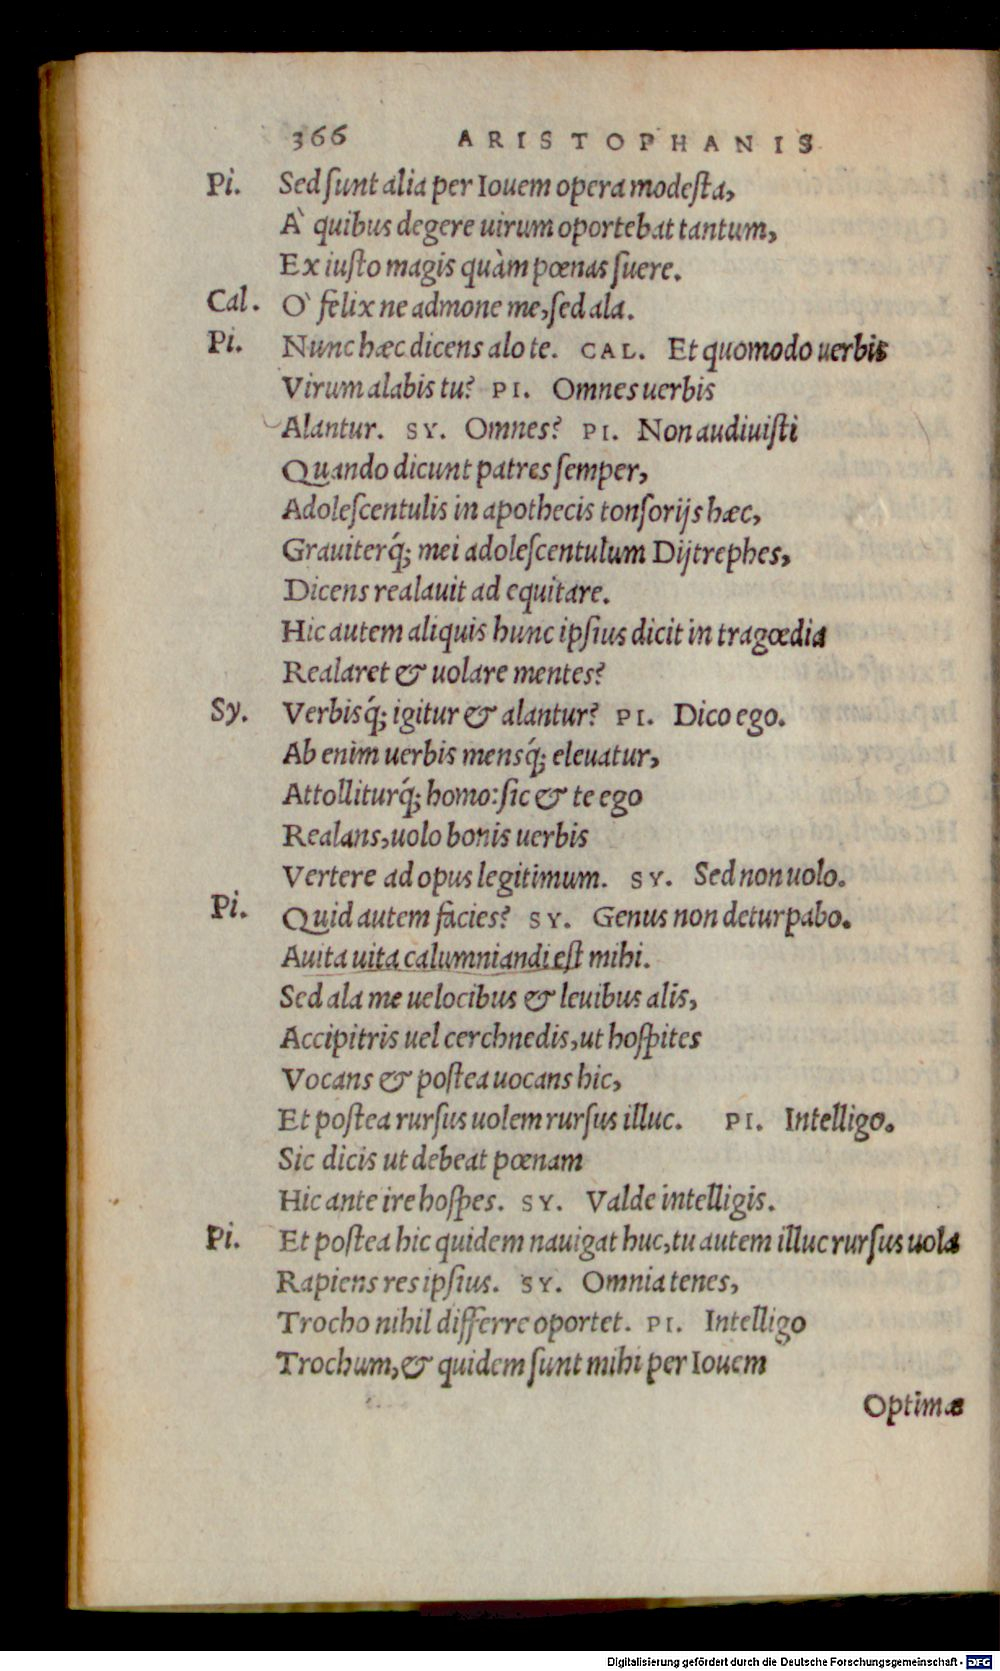 366 ARISTOPHANIS
Pi. Sed ſunt alia per Iouem opera modeſta,
A` quibus degere uirum oportebat tantum,
Ex iuſto magis quàm pœnas ſuere.
Cal. O` felix ne admone me, ſed ala.
Pi. Nunc hæc dicens alo te. CAL. Et quomodo uerbis
Virum alabis tu? PI. Omnes uerbis
Alantur. SY. Omnes? PI. Non audiuiſti
Quando dicunt patres ſemper,
Adoleſcentulis in apothecis tonſorijs hæc,
Grauiterq́; mei adoleſcentulum Dijtrephes,
Dicens realauit ad equitare.
Hic autem aliquis hunc ipſius dicit in tragœdia
Realaret & uolare mentes?
Sy. Verbisq́; igitur & alantur? PI. Dico ego.
Ab enim uerbis mensq́; eleuatur,
Attolliturq́; homo: ſic & te ego
Realans, uolo bonis uerbis
Vertere ad opus legitimum. SY. Sed non uolo.
Pi. Quid autem facies? SY. Genus non deturpabo.
Auita uita calumniandi eſt mihi.
Sed ala me uelocibus & leuibus alis,
Accipitris uel cerchnedis, ut hoſpites
Vocans & poſtea uocans hic,
Et poſtea rurſus uolem rurſus illuc. PI. Intelligo.
Sic dicis ut debeat pœnam
Hic ante ire hoſpes. SY. Valde intelligis.
Pi. Et poſtea hic quidem nauigat huc, tu autem illuc rurſus uolas
Rapiens res ipſius. SY. Omnia tenes,
Trocho nihil differre oportet. PI. Intelligo
Trochum, & quidem ſunt mihi per Iouem
Optimæ
Digitalisierung gefördert durch die Deutsche Forschungsgemeinschaft - DFG